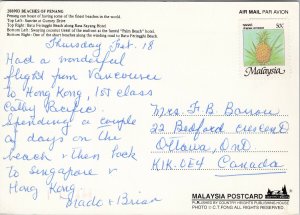 201/093 BEACHES OF PENANG
Penang can boast of having some of the finest beaches in the world.
Top Left: Sunrise at Gurney Drive
Top Right: Batu Ferringgi Beach along Rasa Sayang Hotel
Bottom Left: Swaying coconut trees at the famed "Palm Beach" hotel.
Bottom Right: One of the short beaches along the winding road to Batu Ferringgi Beach.
AIR MAIL PAR AVION
50¢
Malaysia
Thursday Feb. 18
Had a wonderful
flight from Vancouver
to Hong Kong, 1st class
Cathy Pacific.
Spending a couple
of days on the
beach & then back
to Singapore &
Hong Kong.
& Brian
Mrs F.B.
22 Bedford Crescent
Ottawa, Ont
K1K-0E4 Canada
MALAYSIA POSTCARD
PRODUCED BY COUNTRY HEIGHTS PUBLISHING HOUSE
PHOTO © C.T. FONG ALL RIGHTS RESERVED